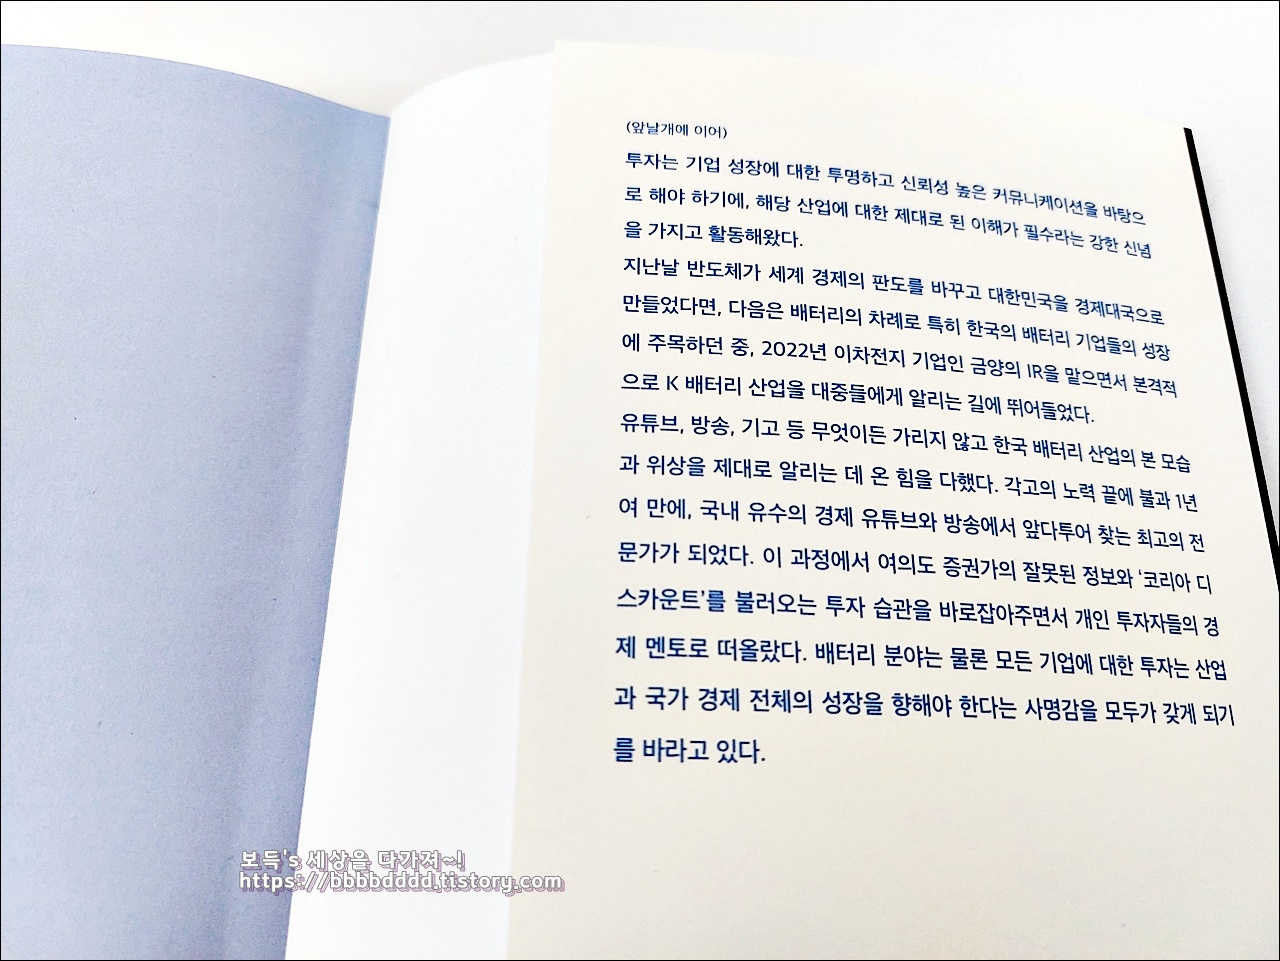 (앞날개에 이어)
투자는 기업 성장에 대한 투명하고 신뢰성 높은 커뮤니케이션을 바탕으
로 해야 하기에, 해당 산업에 대한 제대로 된 이해가 필수라는 강한 신념
을 가지고 활동해왔다.
지난날 반도체가 세계 경제의 판도를 바꾸고 대한민국을 경제대국으로
만들었다면, 다음은 배터리의 차례로 특히 한국의 배터리 기업들의 성장
에 주목하던 중, 2022년 이차전지 기업인 금양의 IR을 맡으면서 본격적
으로 K 배터리 산업을 대중들에게 알리는 길에 뛰어들었다.
유튜브, 방송, 기고 등 무엇이든 가리지 않고 한국 배터리 산업의 본 모습
과 위상을 제대로 알리는 데 온 힘을 다했다. 각고의 노력 끝에 불과 1년
여 만에, 국내 유수의 경제 유튜브와 방송에서 앞다투어 찾는 최고의 전
문가가 되었다. 이 과정에서 여의도 증권가의 잘못된 정보와 ‘코리아 디
스카운트’를 불러오는 투자 습관을 바로잡아주면서 개인 투자자들의 경
제 멘토로 떠올랐다. 배터리 분야는 물론 모든 기업에 대한 투자는 산업
과 국가 경제 전체의 성장을 향해야 한다는 사명감을 모두가 갖게 되기
를 바라고 있다.
보득's 세상을 다가져~!
https://bbbbdddd.tistory.com